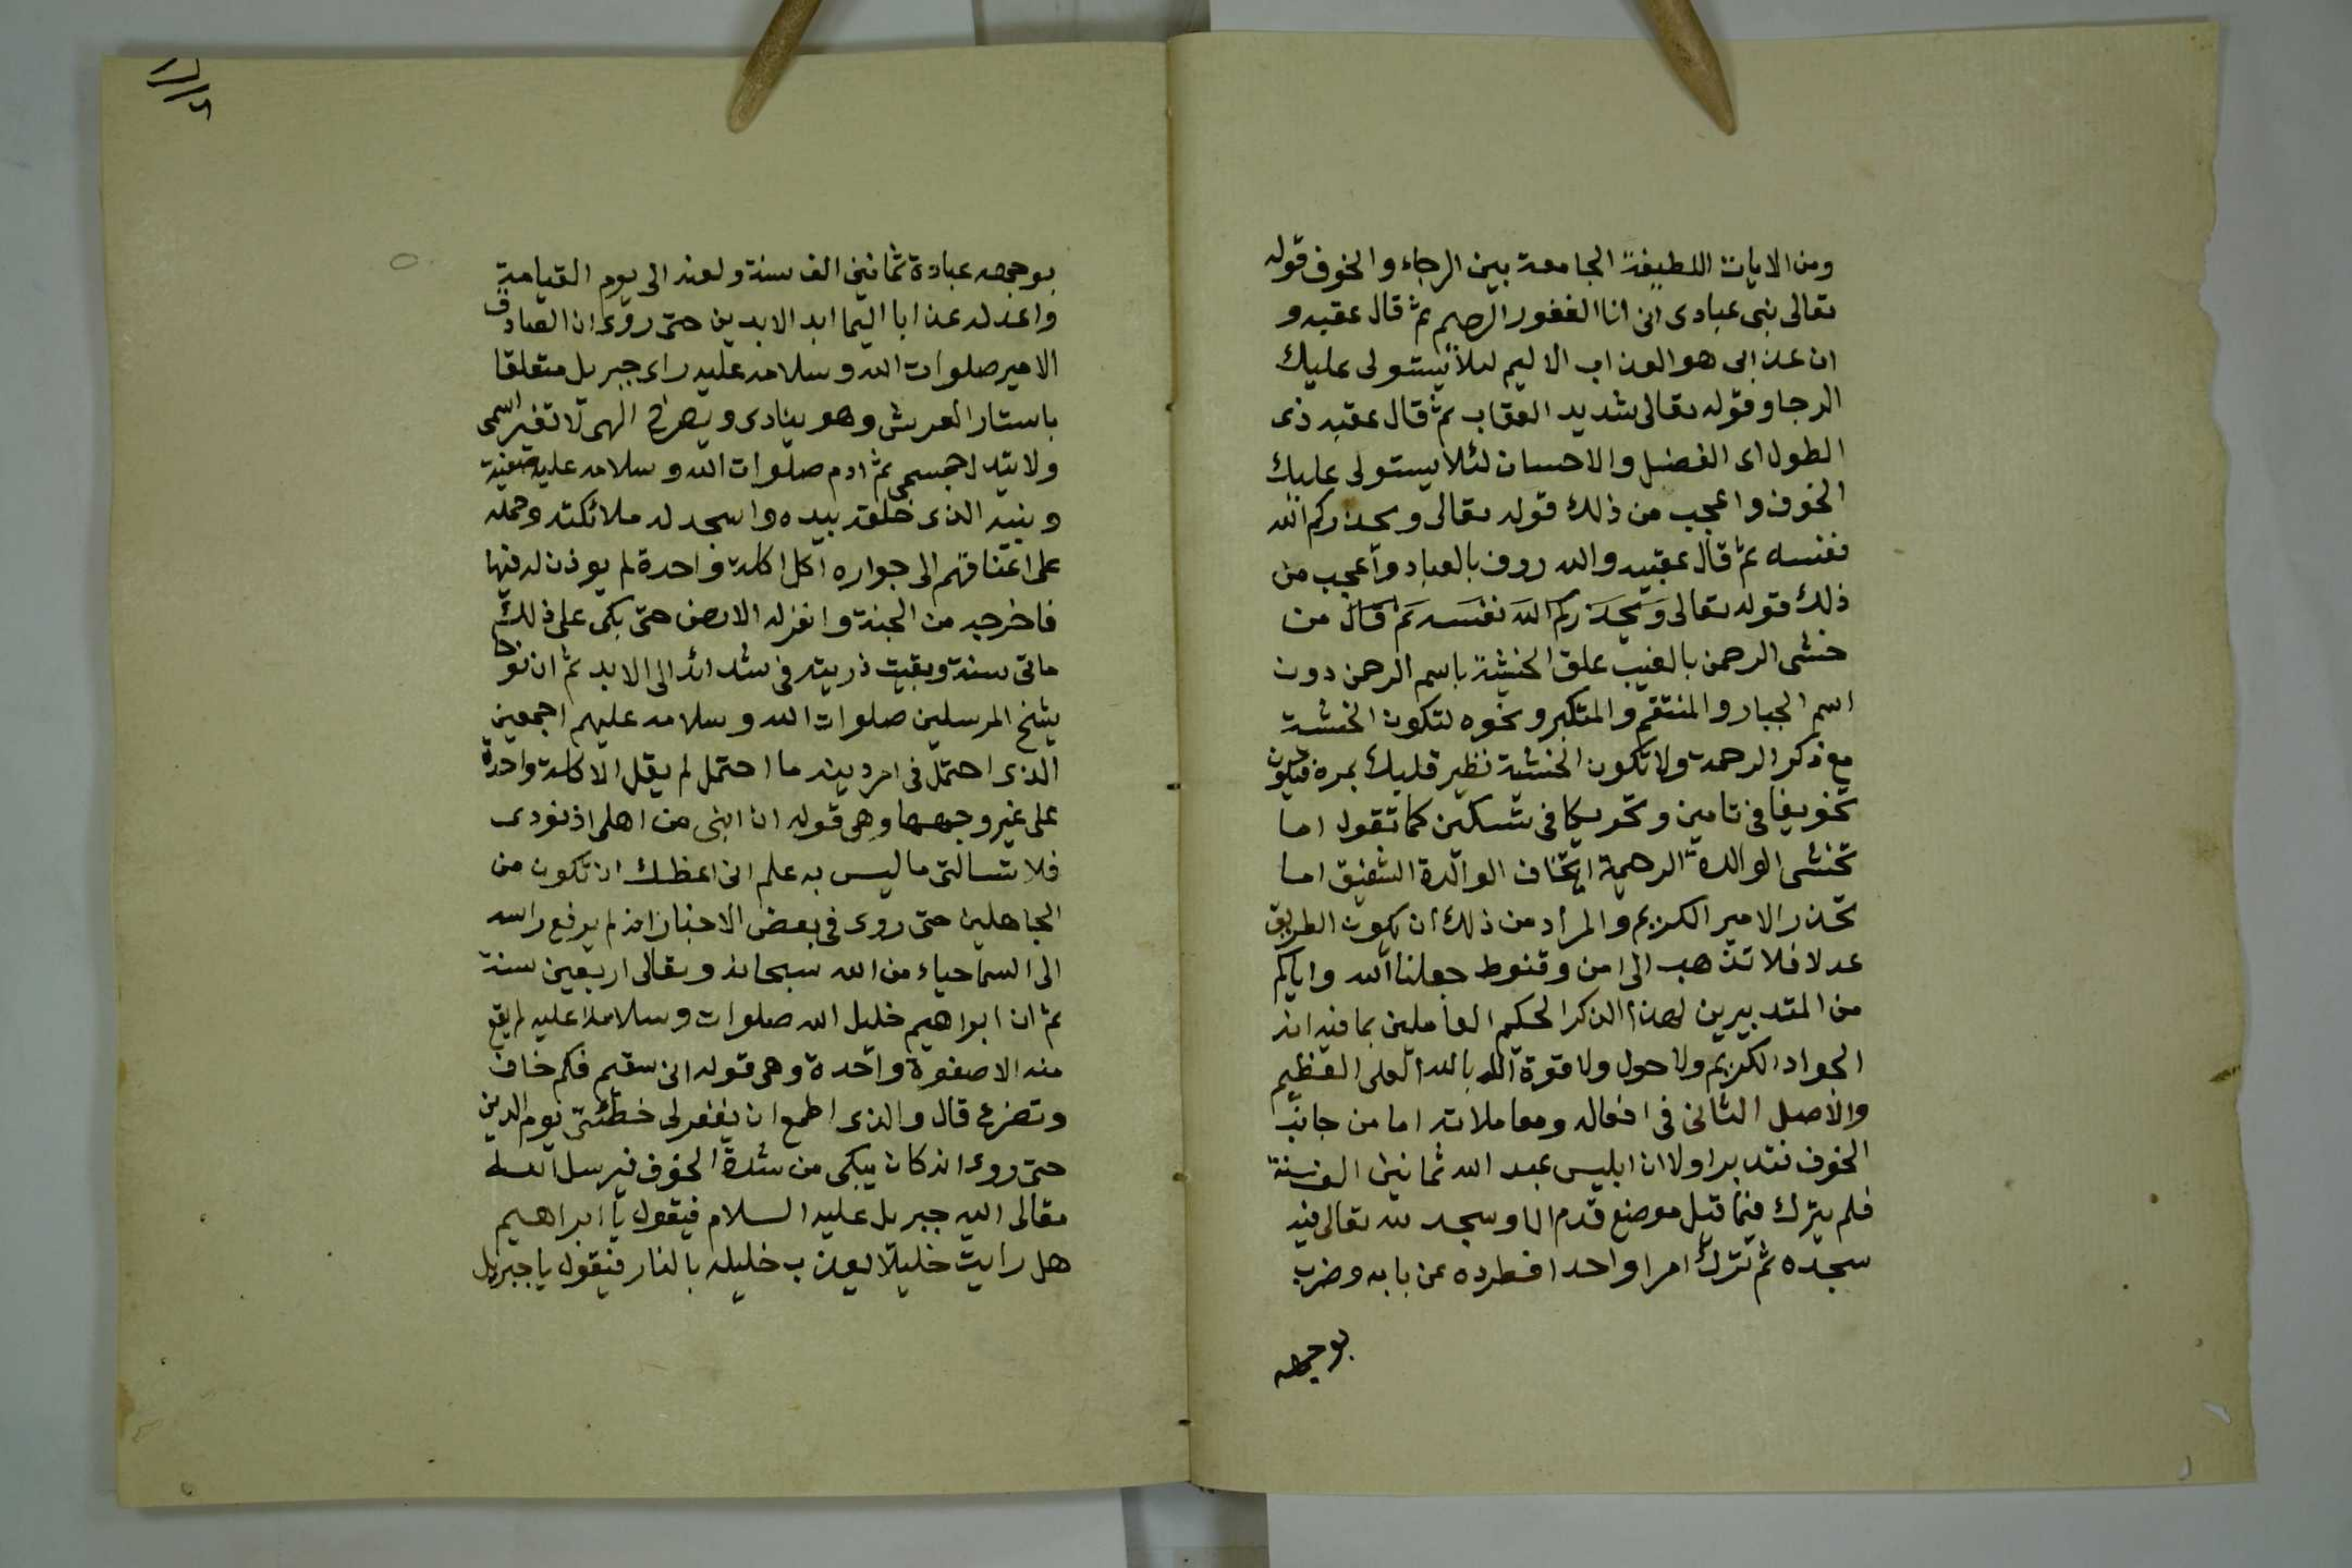 ومن الايات اللطيفة الجامعة بين الرجاء والخوف قوله
تعالى نبى عبادى انى انا الغفور الرحيم ثم قال عقبه و
ان عذابى هو العذاب الاليم لئلا يستولى عليك
الرجا وقوله تعالى شديد العقاب ثم قال عقبه ذى
الطول اى الفضل والاحسان لئلا يستولى عليك
الخوف واعجب من ذلك قوله تعالى ويحذركم الله
نفسه ثم قال عقبه والله روف بالعباد واعجب من
ذلك قوله تعالى ويحذركم الله نفسه ثم قال من
خشى الرحمن بالغيب علق الخشية باسم الرحمن دون
اسم الجبار والمنتقم والمتكبر ونحوه لتكون الخشية
مع ذكر الرحمة ولا تكون الخشية تطير قلبك بمرة فيكون
تخويفا فى تامين وتحريكا فى تسكين كما تقول اما
تخشى الوالدة الرحيمة اما تخاف الوالدة الشفيق اما
تحذر الامير الكريم والمراد من ذلك ان يكون الطريق
عدلا فلا تذهب الى امن وقنوط جعلنا الله واياكم
من المتدبيرين لهذا الذكر الحكيم العاملين بما فيه انه
الجواد الكريم ولا حول ولا قوة الا بالله العلى العظيم
والاصل الثانى فى افعاله ومعاملاته اما من جانب
الخوف فتدبر اولا ان ابليس عبد الله ثمانين الف سنة
فلم يترك فيما قيل موضع قدم الا وسجد لله تعالى فيه
سجده ثم ترك امرا واحدا فطرده عن بابه وضرب
بوجهه
بوجهه عبادة ثمانين الف سنة ولعنه الى يوم القيامة
واعد له عذابا اليما ابد الابدين حتى روى ان الصادق
الامير صلوات الله وسلامه عليه راى جبريل متعلقا
باستار العرش وهو ينادى ويصرخ الهى لا تغير اسمى
ولا تبدل جسمى ثم ادم صلوات الله وسلامه عليه صفيه
ونبيه الذى خلقه بيده واسجد له ملائكته وحمله
على اعناقهم الى جواره اكل اكلة واحدة لم يوذن له فيها
فاخرجه من الجنة وانزله الارض حتى بكى على ذلك
ماتى سنة وبقيت ذريته فى شدائد الى الابد ثم ان نوحا
شيخ المرسلين صلوات الله وسلامه عليهم اجمعين
الذى احتمل فى امر دينه ما احتمل لم يقل الا كلمة واحدة
على غير وجهها وهى قوله ان ابنى من اهلى اذ نودى
فلا تسالنى ما ليس به علم انى اعظك ان تكون من
الجاهلين حتى روى فى بعض الاخبار انه لم يرفع راسه
الى السما حياء من الله سبحانه وتعالى اربعين سنة
ثم ان ابراهيم خليل الله صلوات وسلامه عليه لم يقع
منه الا صفوة واحدة وهى قوله انى سقيم فكم خاف
وتضرع قال والذى اطمع ان يغفر لى خطئتى يوم الدين
حتى روى انه كان يبكى من شدة الخوف فيرسل الله
تعالى اليه جبريل عليه السلام فيقول يا ابراهيم
هل رايت خليلا يعذب خليله بالنار فيقول يا جبريل